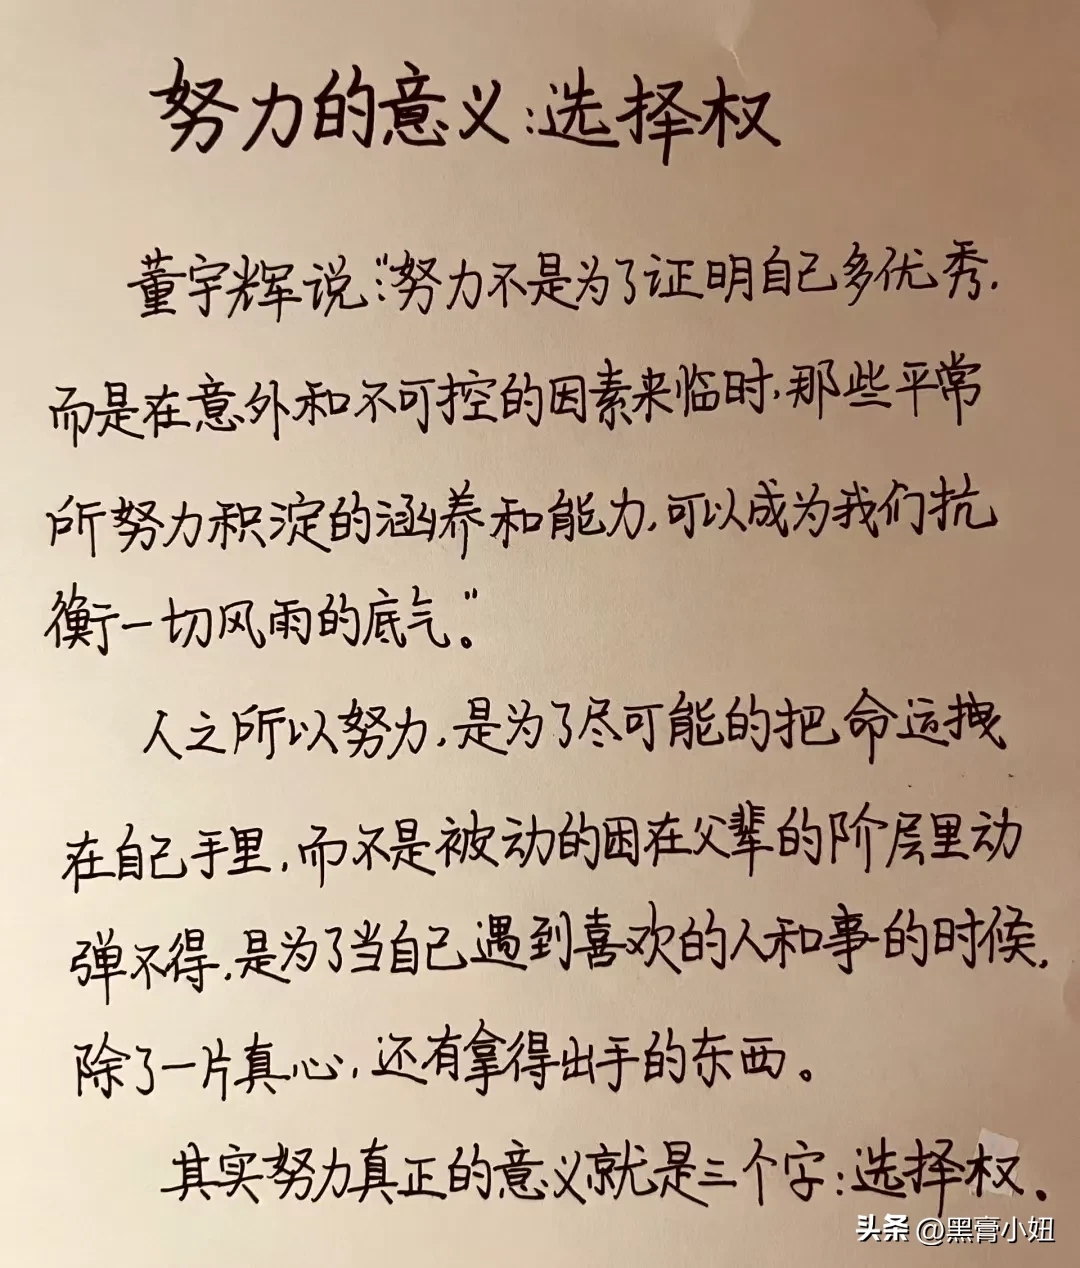 努力的意义:选择权
董宇辉说:"努力不是为了证明自己多优秀.
而是在意外和不可控的因素来临时,那些平常
所努力积淀的涵养和能力,可以成为我们抗
衡一切风雨的底气。"
人之所以努力,是为了尽可能的把命运拽
在自己手里,而不是被动的困在父辈的阶层里动
弹不得,是为了当自己遇到喜欢的人和事的时候,
除了一片真心,还有拿得出手的东西。
其实努力真正的意义就是三个字:选择权.
头条 @黑膏小妞